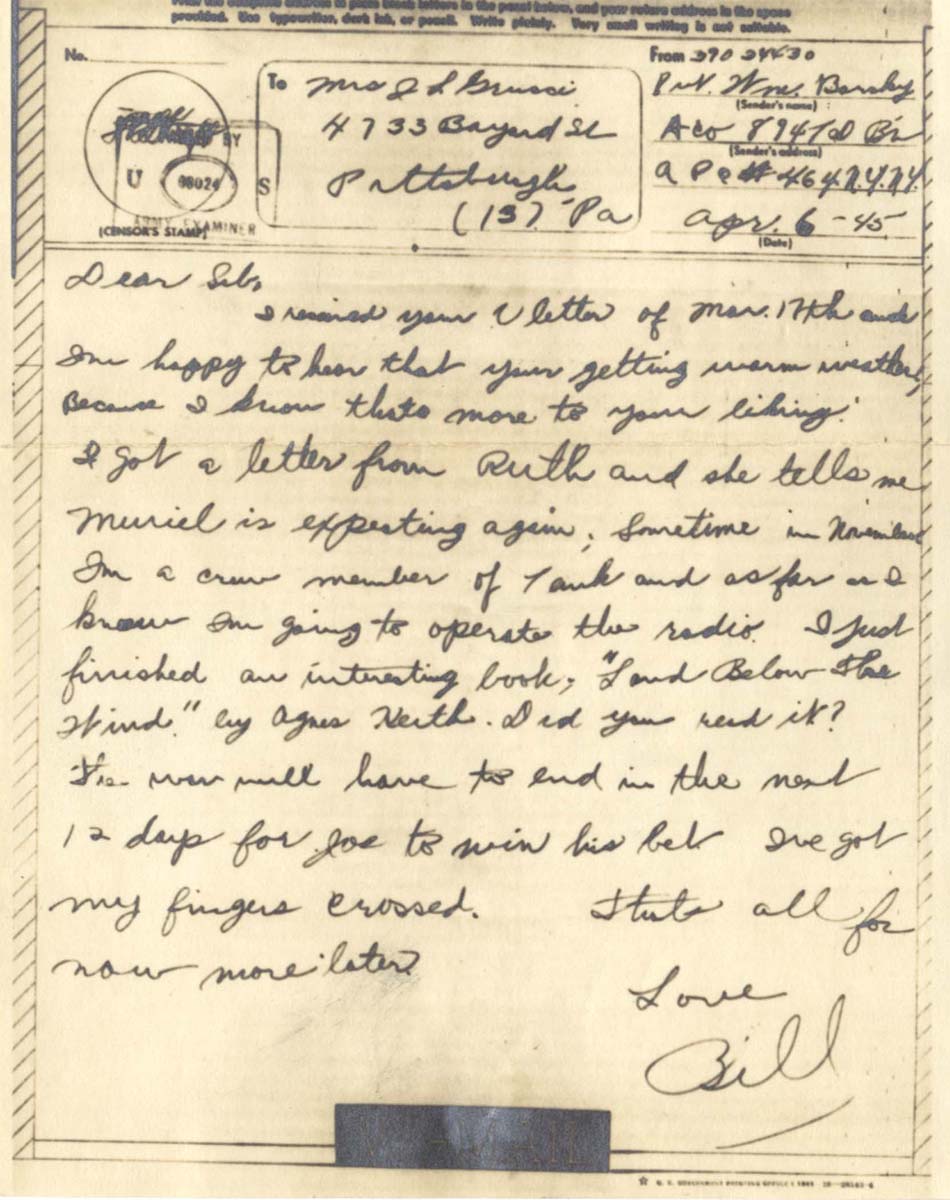 and your return address in the space
provided. Use typewriter, dark ink, or pencil. Write plainly. Very small writing is not suitable.
No.
BY
U 08024 S
ARMY EXAMINER
(CENSOR'S STAMP)
To Mrs J L Grucci
4733 Bayard St
Pittsburgh
(13) Pa
From
Pvt. Wm. Barsky
(Sender's name)
A co
(Sender's address)
A P O # 464 N.Y. N.Y.
Apr. 6 - 45
(Date)
Dear Seb,
I received your V letter of Mar. 17th and
Im happy to hear that your getting warm weather,
Because I know thats more to your liking.
I got a letter from Ruth and she tells me
Muriel is expecting again, Sometime in November
Im a crew member of Tank and as far as I
know Im going to operate the radio. I just
finished an interesting book, "Land Below The
Wind" by Agnes Keith. Did you read it?
The war will have to end in the next
12 days for Joe to win his bet I've got
my fingers crossed. Thats all for
now more later
Love
Bill
V-MAIL
U. S. GOVERNMENT PRINTING OFFICE